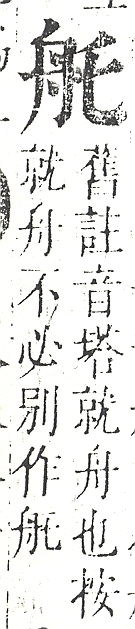 舊註音塔就舟也按
就舟不必別作